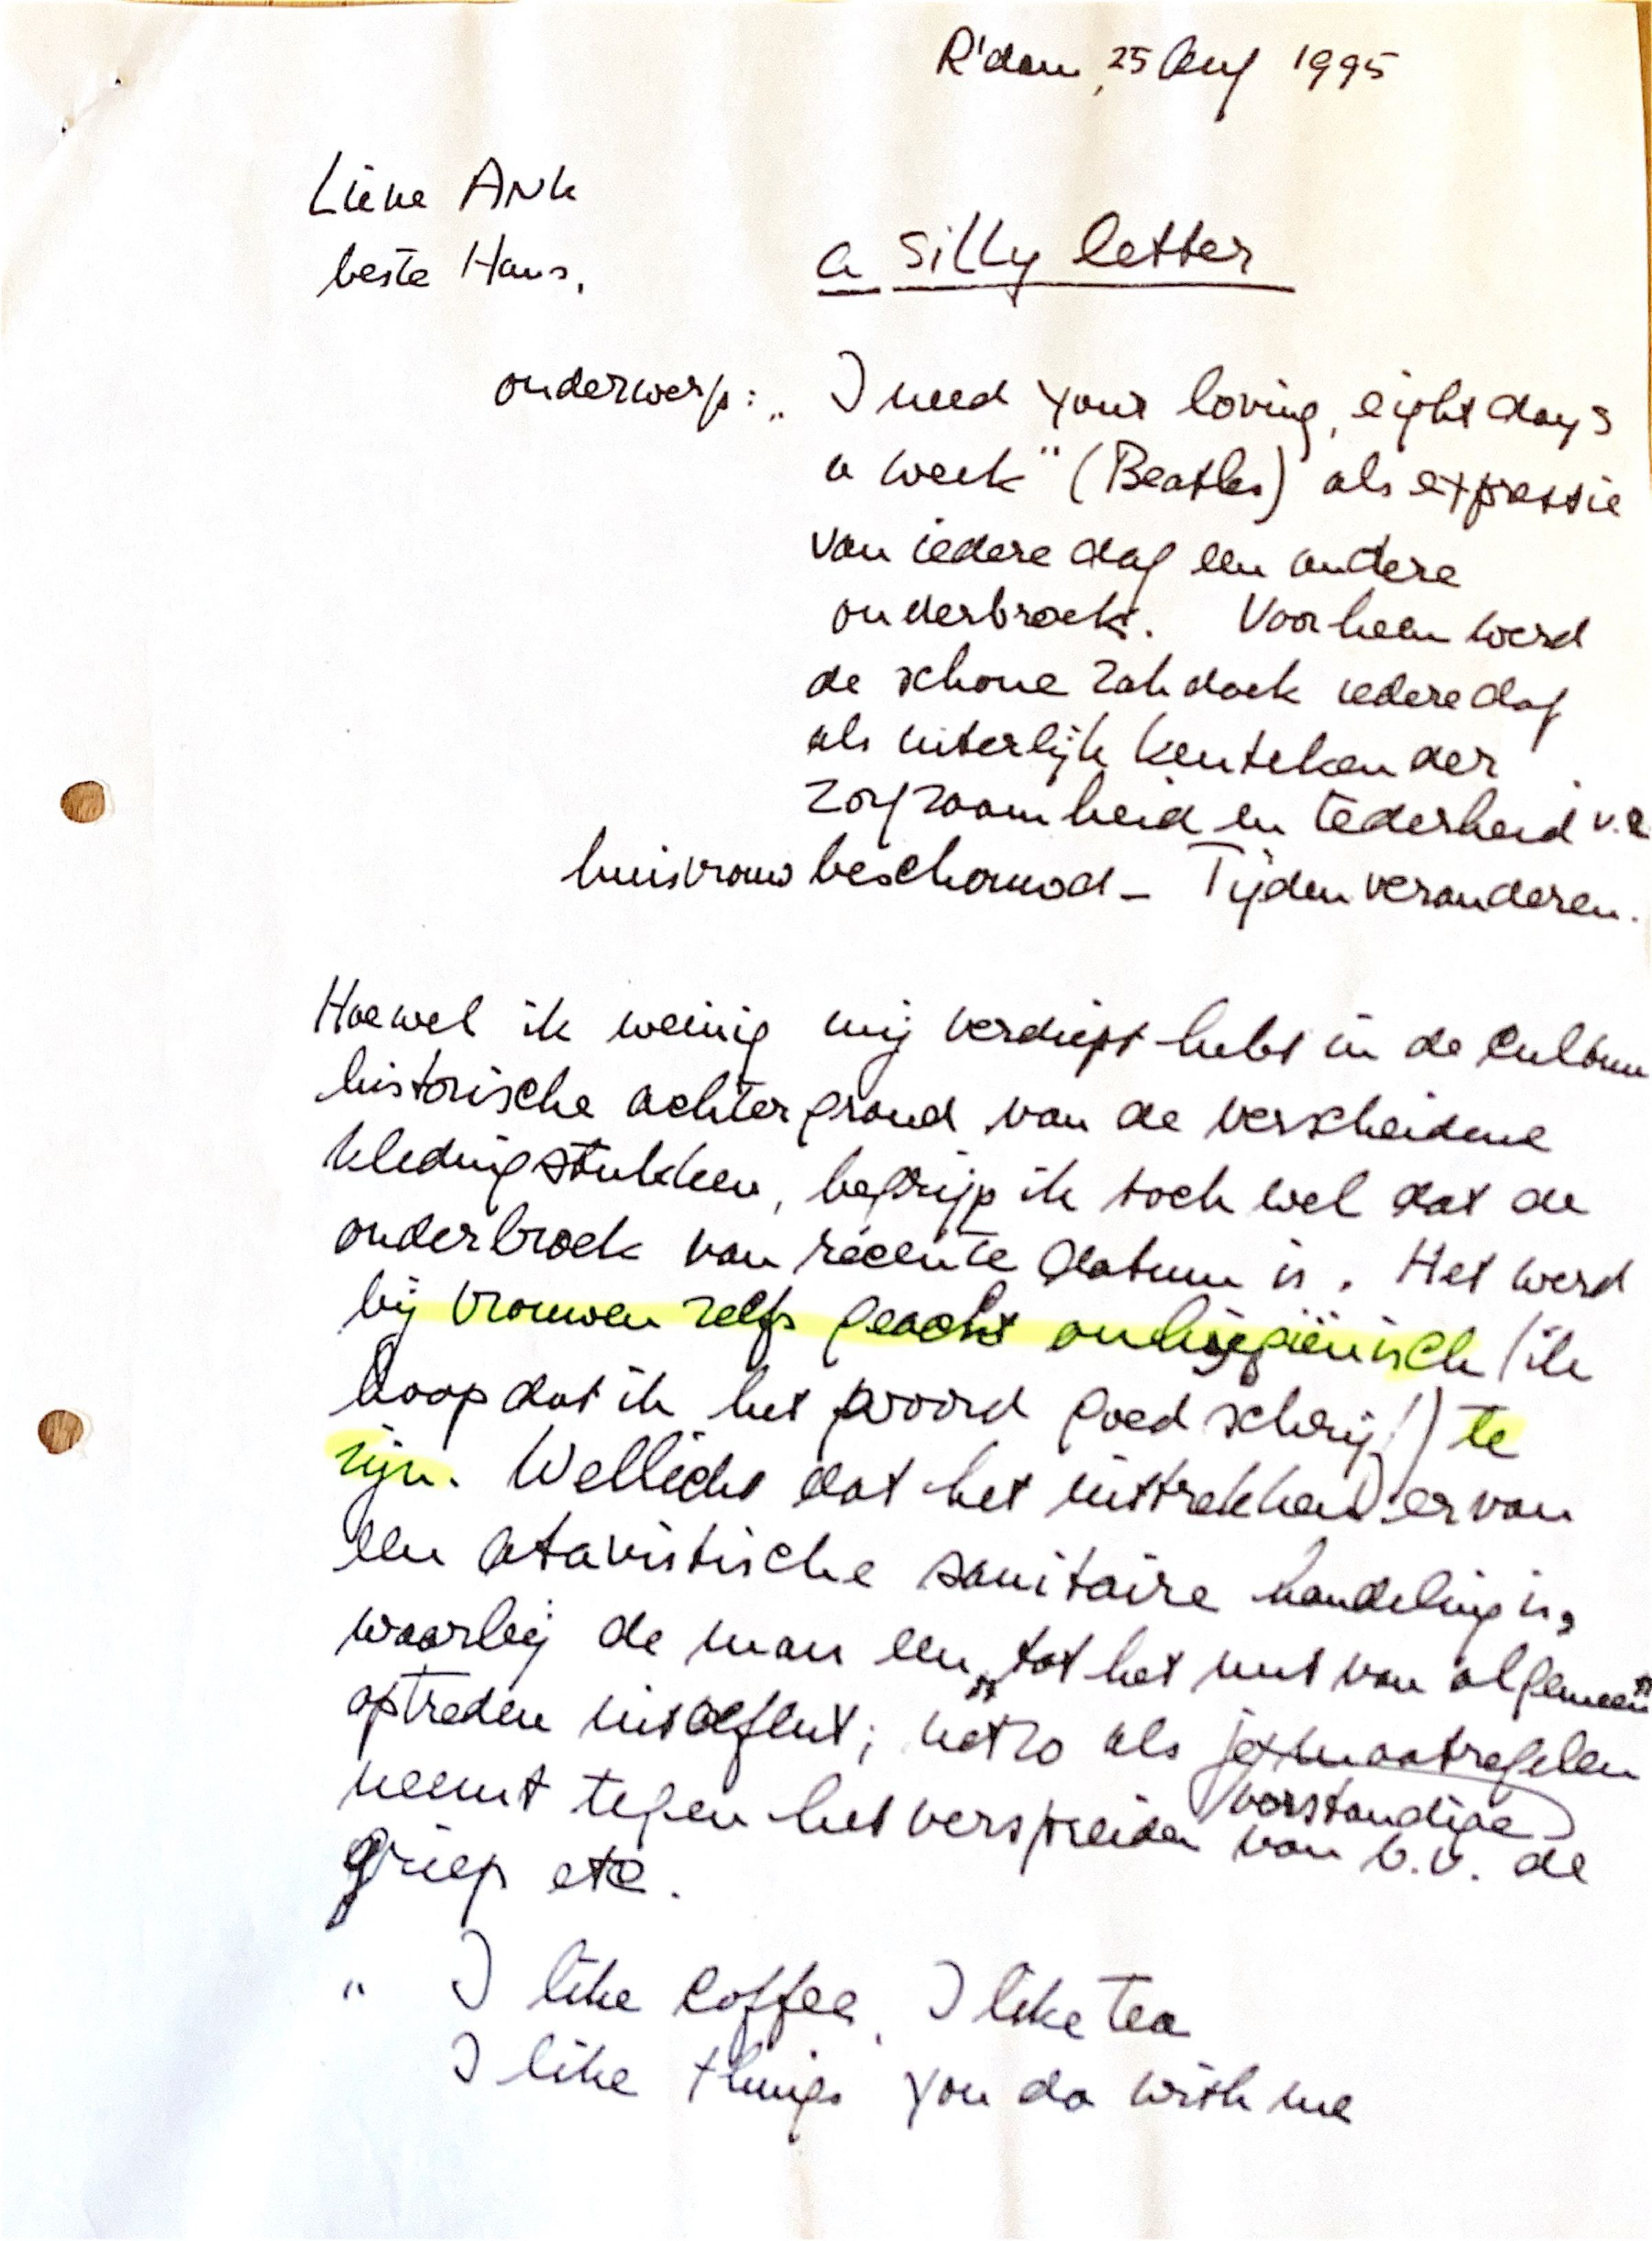 R'dam, 25 Aug 1995
Lieve Ank
beste Hans,
a silly letter
onderwerp: „ I need your loving, eight days
a week" (Beatles) als expressie
van iedere dag een andere
onderbroek. Voorheen werd
de schone zakdoek iedere dag
als uiterlijk kenteken der
zorgzaamheid en tederheid v.e.
huisvrouw beschouwd - Tijden veranderen.
Hoewel ik weinig mij verdiept hebt in de cultuur
historische achtergrond van de verscheidene
kledingstukken, begrijp ik toch wel dat de
onderbroek van recente datum is. Het werd
bij vrouwen zelfs geacht onhygiënisch (ik
hoop dat ik het woord goed schrijf!) te
zijn. Wellicht dat het uittrekken ervan
een atavistische sanitaire handeling is,
waarbij de man een „tot het nut van algemeen"
optreden uitoefent; net zo als je maatregelen
verstandige
neemt tegen het verspreiden van b.v. de
griep etc.
„ I like coffee, I like tea
I like things you do with me